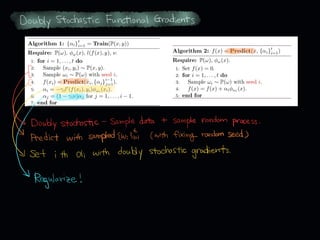 Doubly Stochastic Functional Gradients
Algorithm 1: {αᵢ}ᵗᵢ₌₁ = Train(ℙ(x, y))
Require: ℙ(ω), φω(x), l(f(x), y), ν.
1: for i = 1, . . . , t do
2: Sample (xᵢ, yᵢ) ∼ ℙ(x, y).
3: Sample ωᵢ ∼ ℙ(ω) with seed i.
4: f(xᵢ) = Predict(xᵢ, {αⱼ}ⁱ⁻¹ⱼ₌₁).
5: αᵢ = −γᵢl′(f(xᵢ), yᵢ)φωᵢ(xᵢ).
6: αⱼ = (1 − γᵢν)αⱼ for j = 1, . . . , i − 1.
7: end for
Algorithm 2: f(x) = Predict(x, {αᵢ}ᵗᵢ₌₁)
Require: ℙ(ω), φω(x).
1: Set f(x) = 0.
2: for i = 1, . . . , t do
3: Sample ωᵢ ∼ ℙ(ω) with seed i.
4: f(x) = f(x) + αᵢφωᵢ(x).
5: end for
Doubly stochastic - Sample data + sample random process.
Predict with sampled {ωᵢ}ᵗᵢ₌₁ (with fixing random seed)
Set i th αᵢ with doubly stochastic gradients.
Regularize!